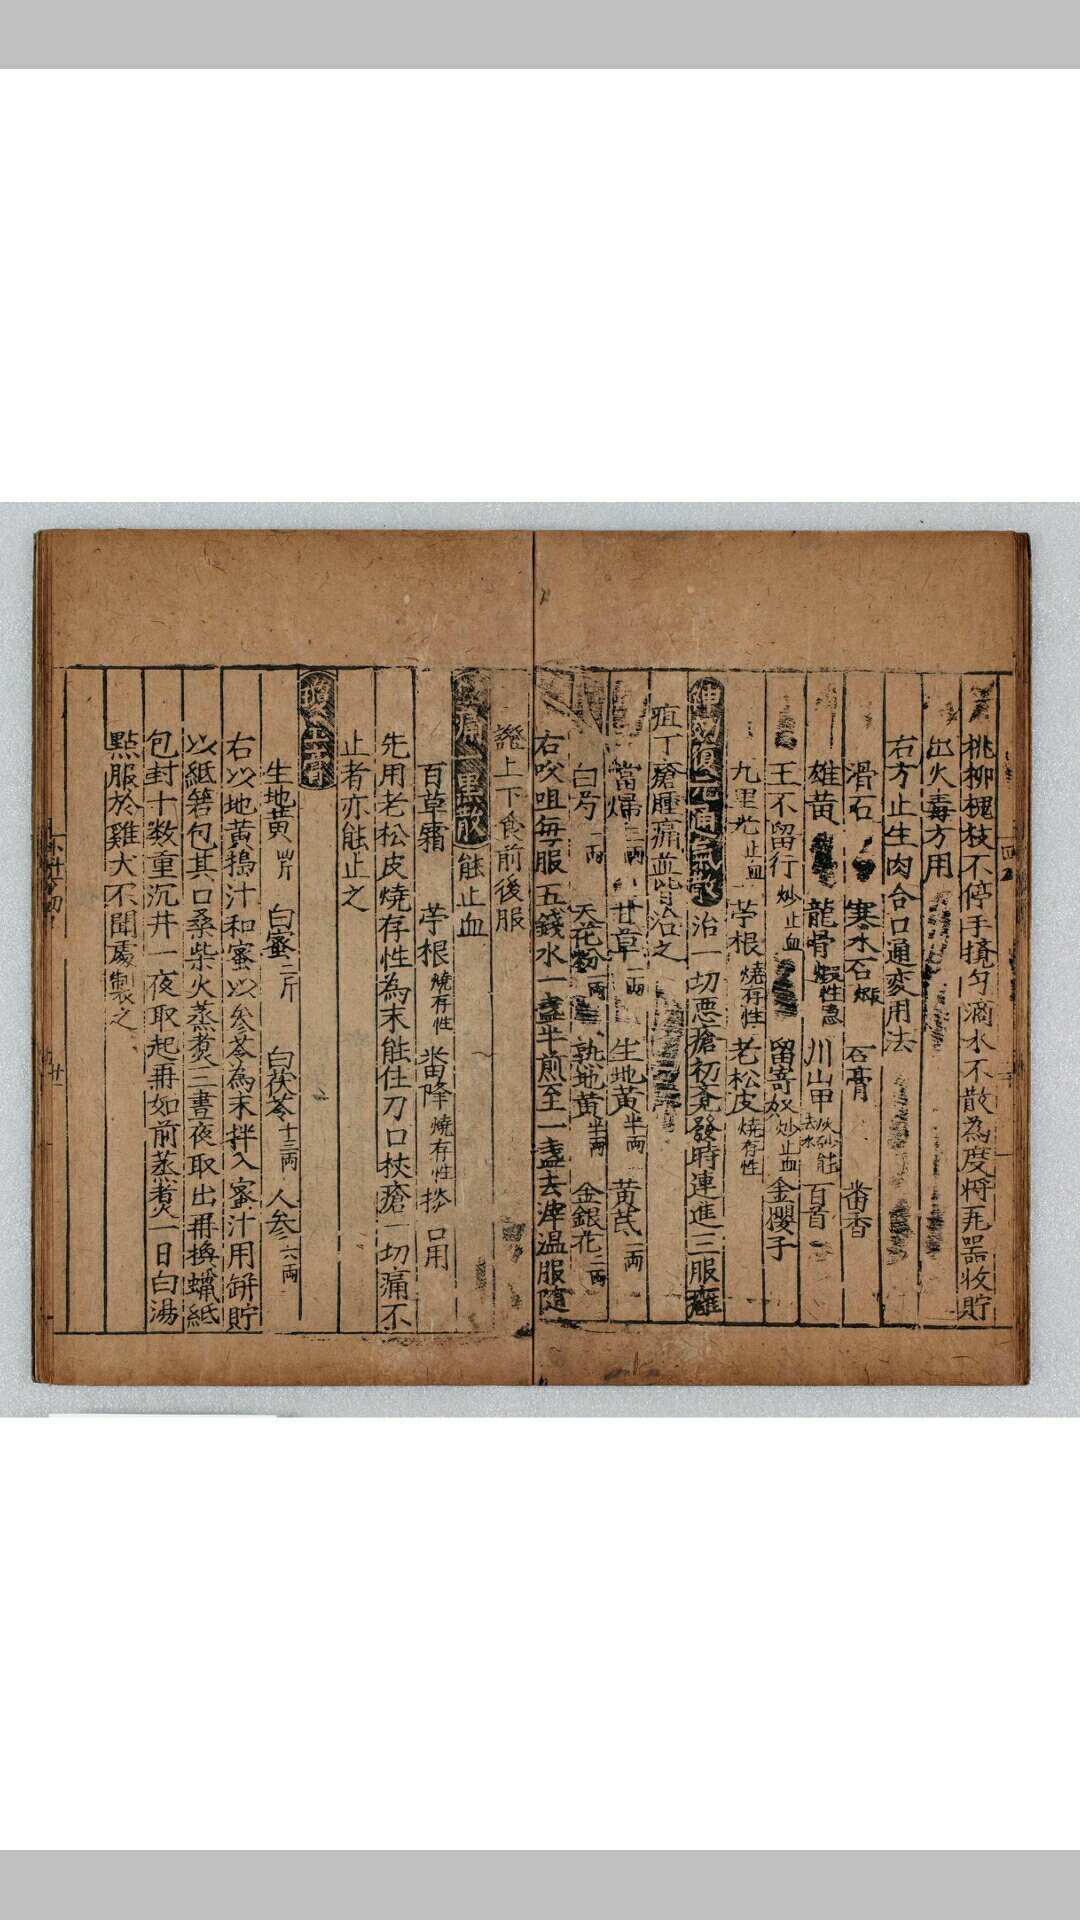 桃柳槐枝不停手攪匀滴水不散為度將瓦噐收貯
出火毒方用
右方止生肉合口通変用法
滑石 寒水石煅 石膏 畨香
雄黄 龍骨煅性急 川山甲火炒去水能 百首
王不留行炒止血 留寄奴炒止血 金櫻子
九里光止血 苧根燒存性 老松皮燒存性
神効復元通氣散 治一切悪瘡初竟發時連進三服癰
疽丁瘡腫痛並皆治之
當歸二兩 甘草一兩 生地黄半兩 黄芪一兩
白芍一兩 天花粉一兩 熟地黄半兩 金銀花二兩
右㕮咀每服五錢水一盞半煎至一盞去滓温服隨
證上下食前後服
黒散 能止血
百草霜 苧根燒存性 畨降燒存性 搽口用
先用老松皮燒存性為末能住刀口杖瘡一切痛不
止者亦能止之
瓊玉膏
生地黄四斤 白蜜二斤 白茯苓十三兩 人参六兩
右以地黄搗汁和蜜以参苓為末拌入蜜汁用缾貯
以紙箬包其口桑柴火蒸煮三晝夜取出再換蠟紙
包封十数重沉井一夜取起再如前蒸煮一日白湯
點服於雞犬不聞處製之